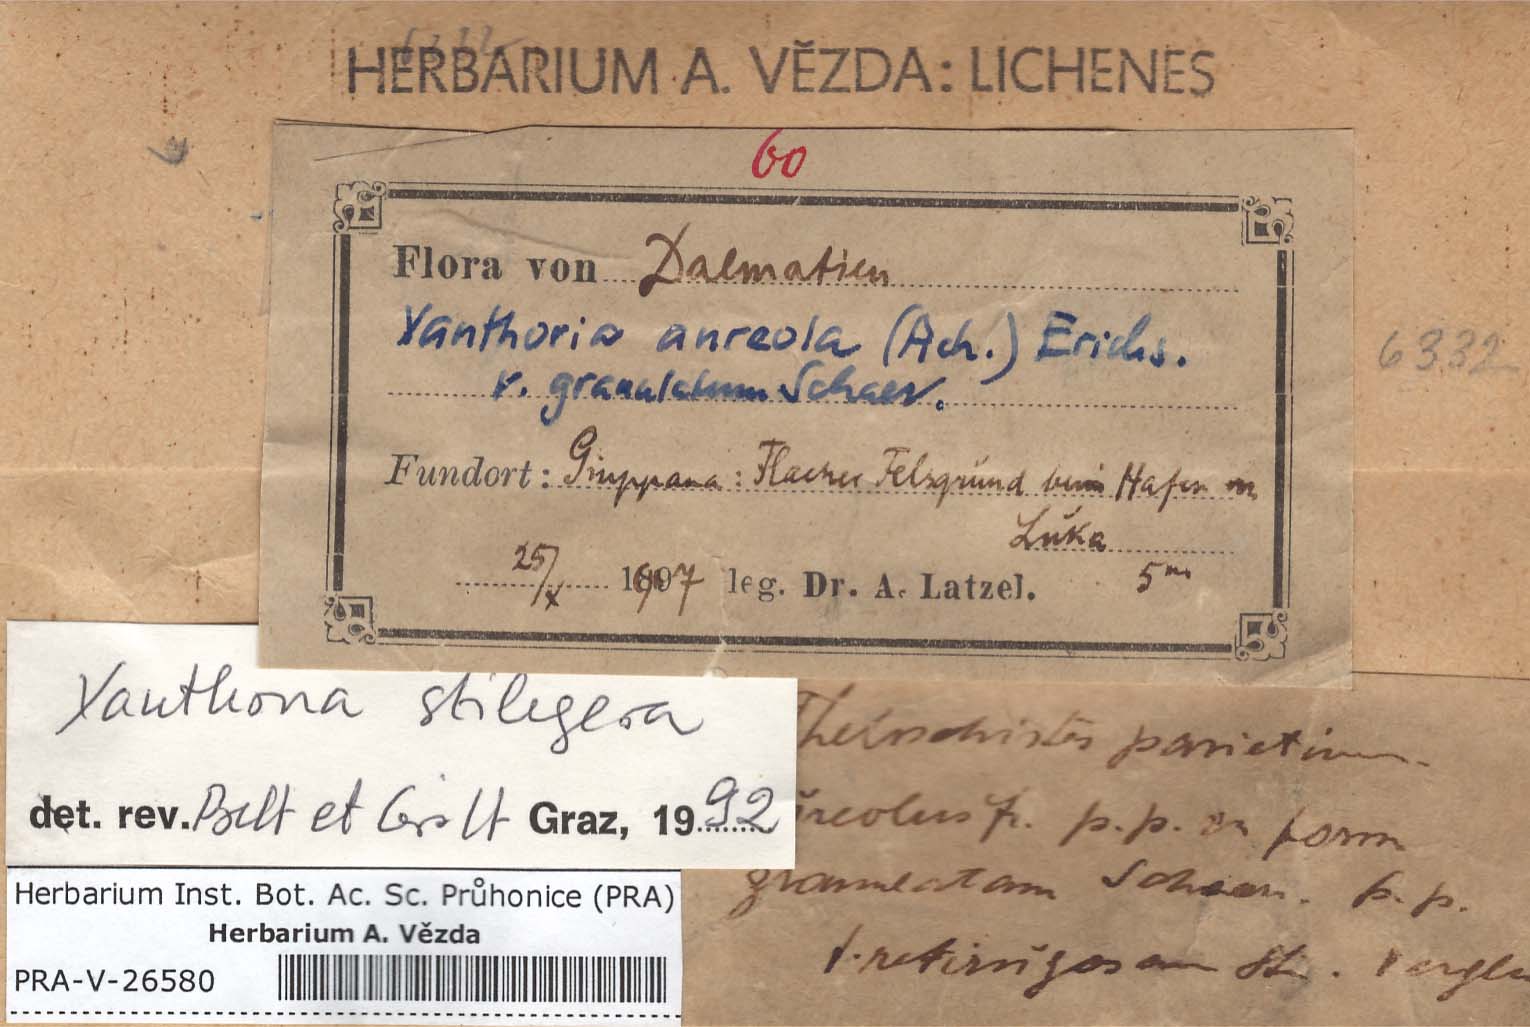 HERBARIUM A. VĚZDA: LICHENES
60
Flora von Dalmatien
Xanthoria aureola (Ach.) Erichs.
v. granulatum Schaer.
6332
Fundort: Giuppana: Flacher Felsgrund beim Hafen von
Luka
25/X 1907 leg. Dr. A. Latzel. 5 m
Xanthoria stiligera
det. rev. Poelt et Grolt Graz, 1992
parietinus
p.p. in form
Schaer. p.p.
v. retirugosam St.
Herbarium Inst. Bot. Ac. Sc. Průhonice (PRA)
Herbarium A. Vězda
PRA-V-26580